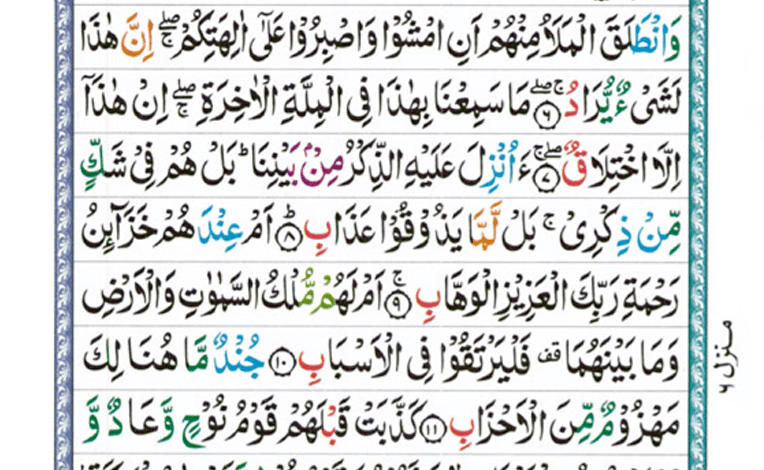 وَانْطَلَقَ الْمَلَاُ مِنْهُمْ اَنِ امْشُوْا وَاصْبِرُوْا عَلٰٓى اٰلِهَتِكُمْ ۖۚ اِنَّ هٰذَا
لَشَىْءٌ يُّرَادُ ۖۚ ۶ مَا سَمِعْنَا بِهٰذَا فِى الْمِلَّةِ الْاٰخِرَةِ ۖۚ اِنْ هٰذَاۤ
اِلَّا اخْتِلَاقٌ ۖۚ ۷ ءَاُنْزِلَ عَلَيْهِ الذِّكْرُ مِنْۢ بَيْنِنَا ؕ بَلْ هُمْ فِىْ شَكٍّ
مِّنْ ذِكْرِىْ ۚ بَلْ لَّمَّا يَذُوْقُوْا عَذَابِ ؕ ۸ اَمْ عِنْدَهُمْ خَزَآئِنُ
رَحْمَةِ رَبِّكَ الْعَزِيْزِ الْوَهَّابِ ۚ ۹ اَمْ لَهُمْ مُّلْكُ السَّمٰوٰتِ وَالْاَرْضِ
وَمَا بَيْنَهُمَا قف فَلْيَرْتَقُوْا فِى الْاَسْبَابِ ۱۰ جُنْدٌ مَّا هُنَالِكَ
مَهْزُوْمٌ مِّنَ الْاَحْزَابِ ۱۱ كَذَّبَتْ قَبْلَهُمْ قَوْمُ نُوْحٍ وَّعَادٌ وَّ
منزل ۶